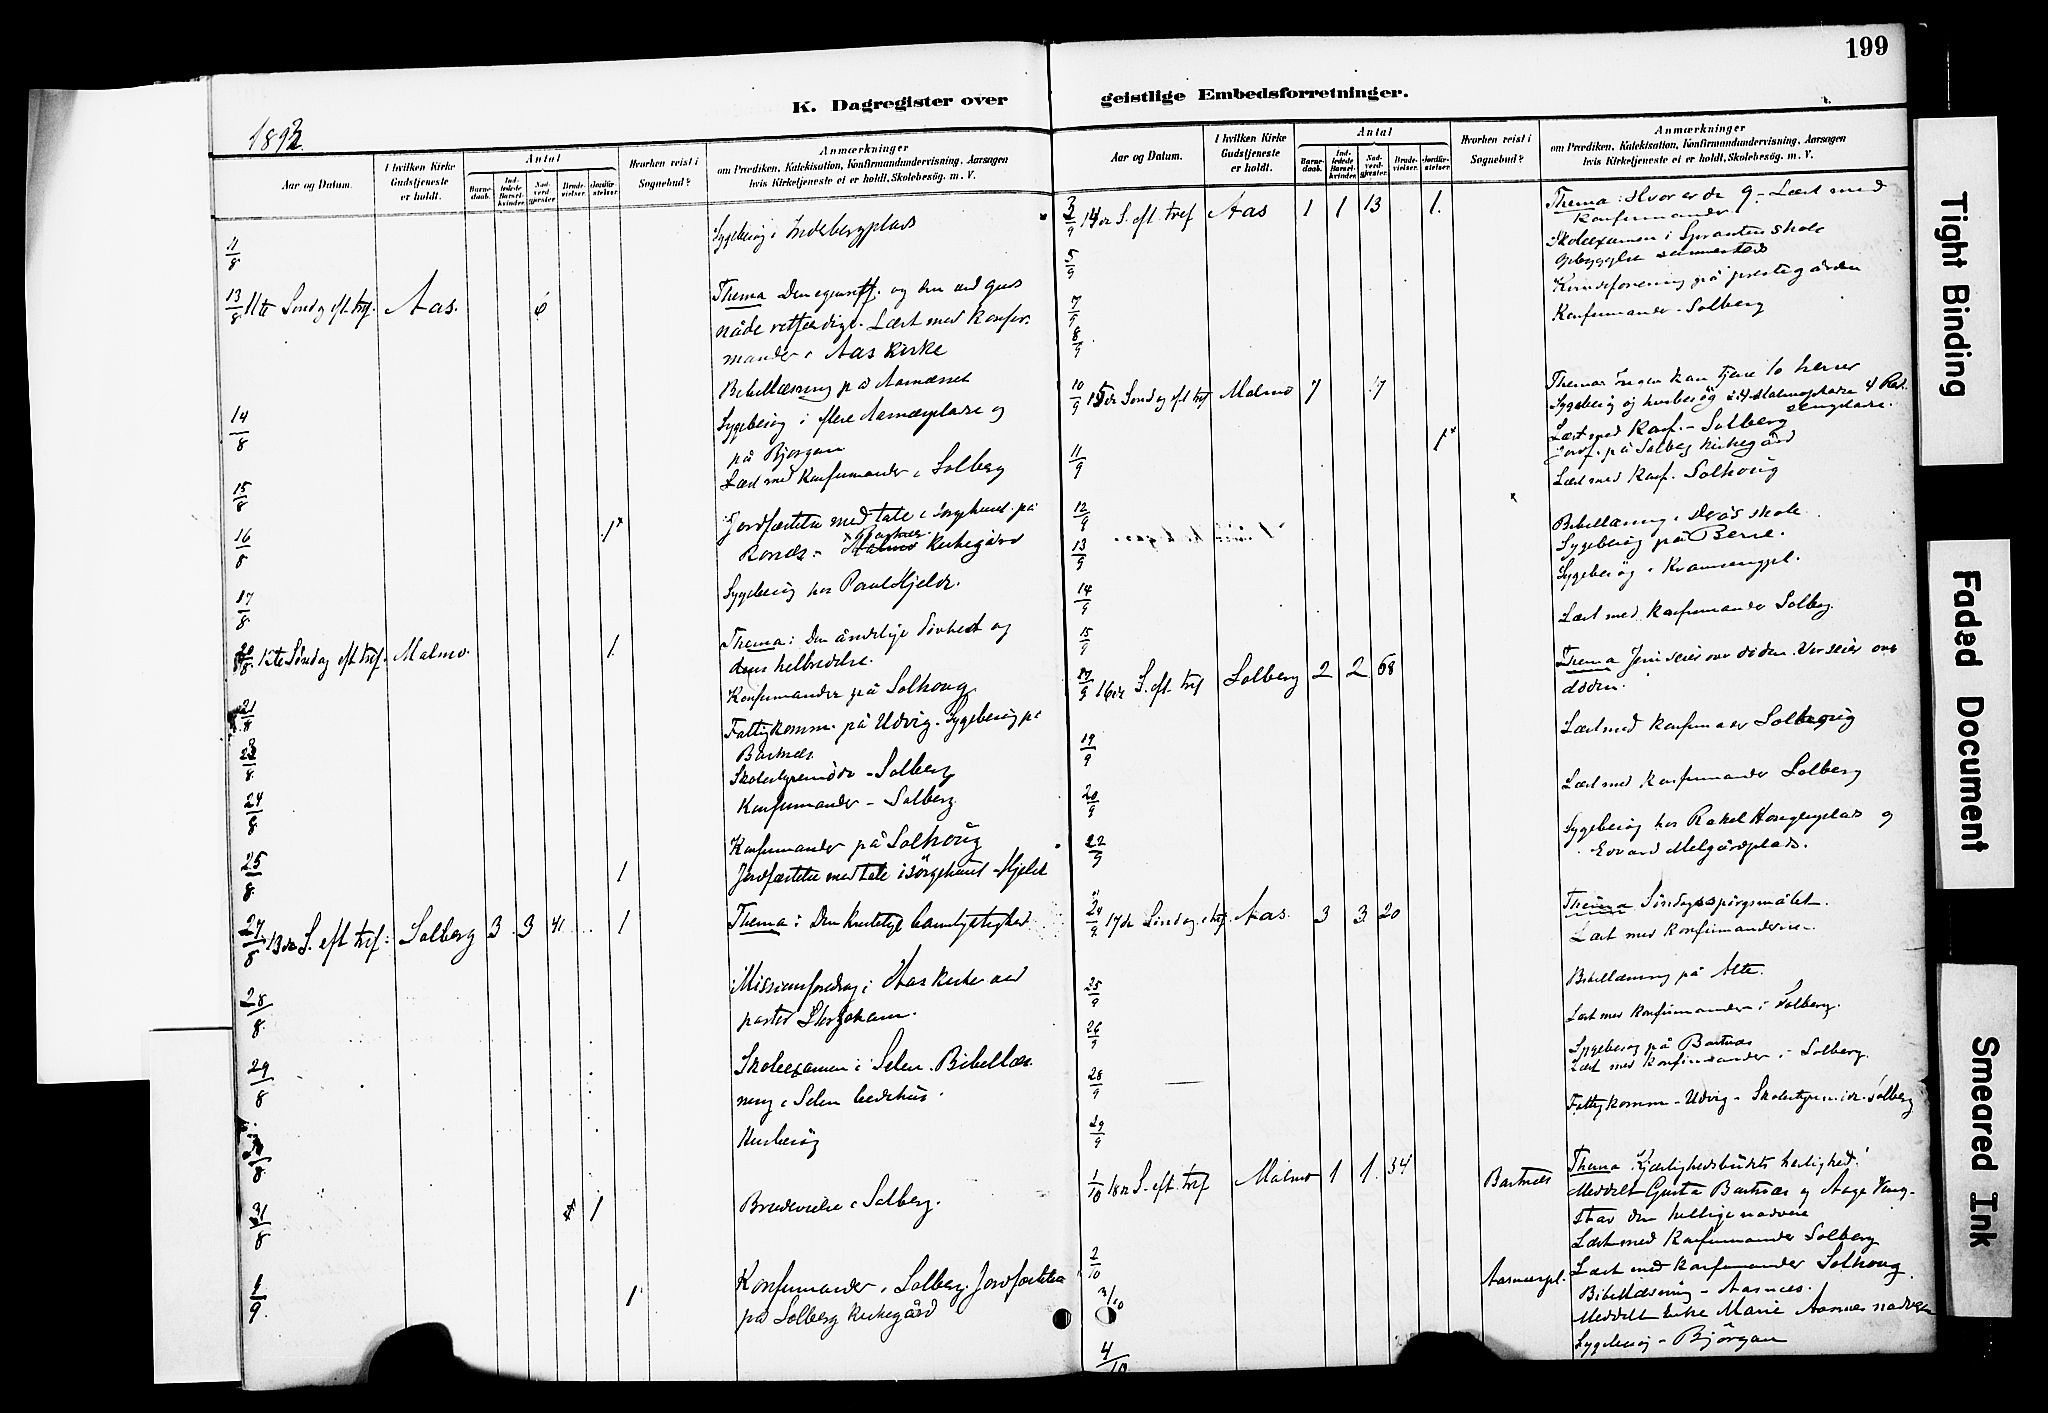 199
K. Dagregister over geistlige Embedsforretninger.
1893
Aar og Datum.
I hvilken Kirke Gudstjeneste er holdt.
Antal
Barnedaab.
Indledede Barselkvinder.
Nadverdgjester.
Brudevielser.
Jordfæstelser.
Hvorhen reist i Sognebud?
Anmærkninger
om Prædiken, Katekisation, Konfirmandundervisning, Aarsagen
hvis Kirketjeneste ei er holdt, Skolebesøg. m. V.
11/8 Sygebesög i
13/8 11te Söndag eft. tref. Aas. 6 Thema Den og den ved guds
nåde retferdige. Læst med Konfir-
mander i Aas Kirke
Bibellæsning på Aasnæsset
14/8 Sygebesög i flere Aasnæspladse og
på Bjørgan
15/8 Læst med Konfirmander i Solberg
16/8 1x Jordfæstelse med tale i sorgehuset på
Kirkegård
17/8 Sygebesög hos Paul Hjelde.
20/8 12te Söndag eft. tref. Malmo. 1. Thema: Den åndelige dövhed og
dens helbredelse.
Konfirmander på Solhoug
21/8 Fattigkomm. på Udvig. Sygebesög på
Bartnæs.
Skolestyremöde - Solberg
24/8 Konfirmander - Solberg
25/8 Konfirmander på Solhoug
1 Jordfæstelse med tale i sörgehuset - Hjelde
27/8 13de S. eft. tref. Solberg 3 3 41 1 Thema: Den kristelige barmhjertighed
28/8 Missionsforedrag i Aas Kirke ved
pastor
29/8 Skoleexamen i Selen. Bibellæs-
ning i Selen bedehus.
Husbesög
31/8 1 Brudevielse i Solberg.
1/9 1 Konfirmander i Solberg. Jordfæstelse
på Solberg Kirkegård
Aar og Datum.
I hvilken Kirke Gudstjeneste er holdt.
Antal
Barnedaab.
Indledede Barselkvinder.
Nadverdgjester.
Brudevielser.
Jordfæstelser.
Hvorhen reist i Sognebud?
Anmærkninger
om Prædiken, Katekisation, Konfirmandundervisning, Aarsagen
hvis Kirketjeneste ei er holdt, Skolebesøg. m. V.
3/9 14de S. eft. tref Aas 1 1 13 1. Thema: Hvor er de 9. - Læst med
Konfirmander
5/9 Skoleexamen i skole
Opbyggelse sammesteds
7/9 Kvindeforening på prestegården
8/9 Konfirmander - Solberg
10/9 15de Söndag eft tref Malmo 7 17 Thema: Ingen kan tjene to herrer
Sygebesög og husbesög i Malmopladse
11/9 1x Læst med Konf. - Solberg
Jordf. på Solberg Kirkegård
12/9 Læst med Konf. Solhoug
13/9 Bibellæsning i skole
Sygebesög på Berre.
14/9 Sygebesög i
15/9 Læst med Konfirmander Solberg.
17/9 16de S. eft. tref Solberg 2 2 68 Thema Jesu seier over döden. Vor seier over
döden.
19/9 Læst med Konfirmander Solhoug
20/9 Læst med Konfirmander Solberg
22/9 Sygebesög hos Rakel og
Edvard Melgårdsplads.
24/9 17de Söndag e. tref Aas. 3 3 20 Thema Söndagsspörgsmålet.
Læst med konfirmanderne -
25/9 Bibellæsning på
26/9 Læst med Konfirmander i Solberg.
28/9 Sygebesög på Bartnæs
Læst med Konfirmander - Solberg.
29/9 Fattigkomm - Udvig - Skolestyremöde - Solberg
1/10 18de S. eft. tref Malmo 1 1 34 Bartnæs Thema: Kjærlighedsbudets herlighed!
Meddelt Gusta Bartnæs og Aage Vang-
stad den hellige nadvere
2/10 Læst med Konfirmander Solberg
3/10 Aasnæspl. Læst med Konfirmander Solhoug
Bibellæsning - Aasnæs.
Meddelt Enke Marie Aasnes nadvere
4/10 Sygebesög - Björgan
Tight Binding
Faded Document
Smeared Ink